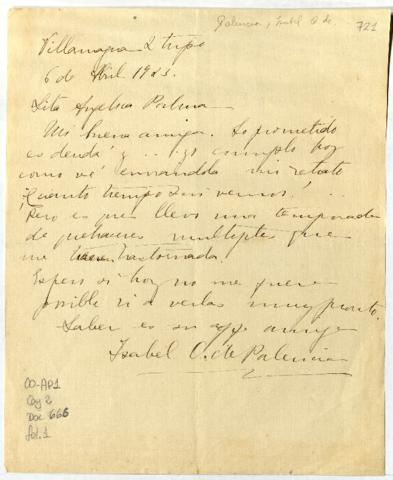 Palencia, Isabel O. de
721
Villamagna 2 trip.
6 de Abril 1923.
Srta Angelica Palma
Mi buena amiga. Lo prometido
es deuda y ... yo cumplo hoy
como vé enviandola mi retrato
¡Cuanto tiempo sin vernos! ..
Pero es que llevo una temporada
de quehaceres multiples que
me tienen trastornada.
Espero si hoy no me fuera
posible ir a verlas muy pronto.
Saber es su affma amiga
Isabel O. de Palencia
CO-AP1
Caj 2
Doc 666
fol. 1